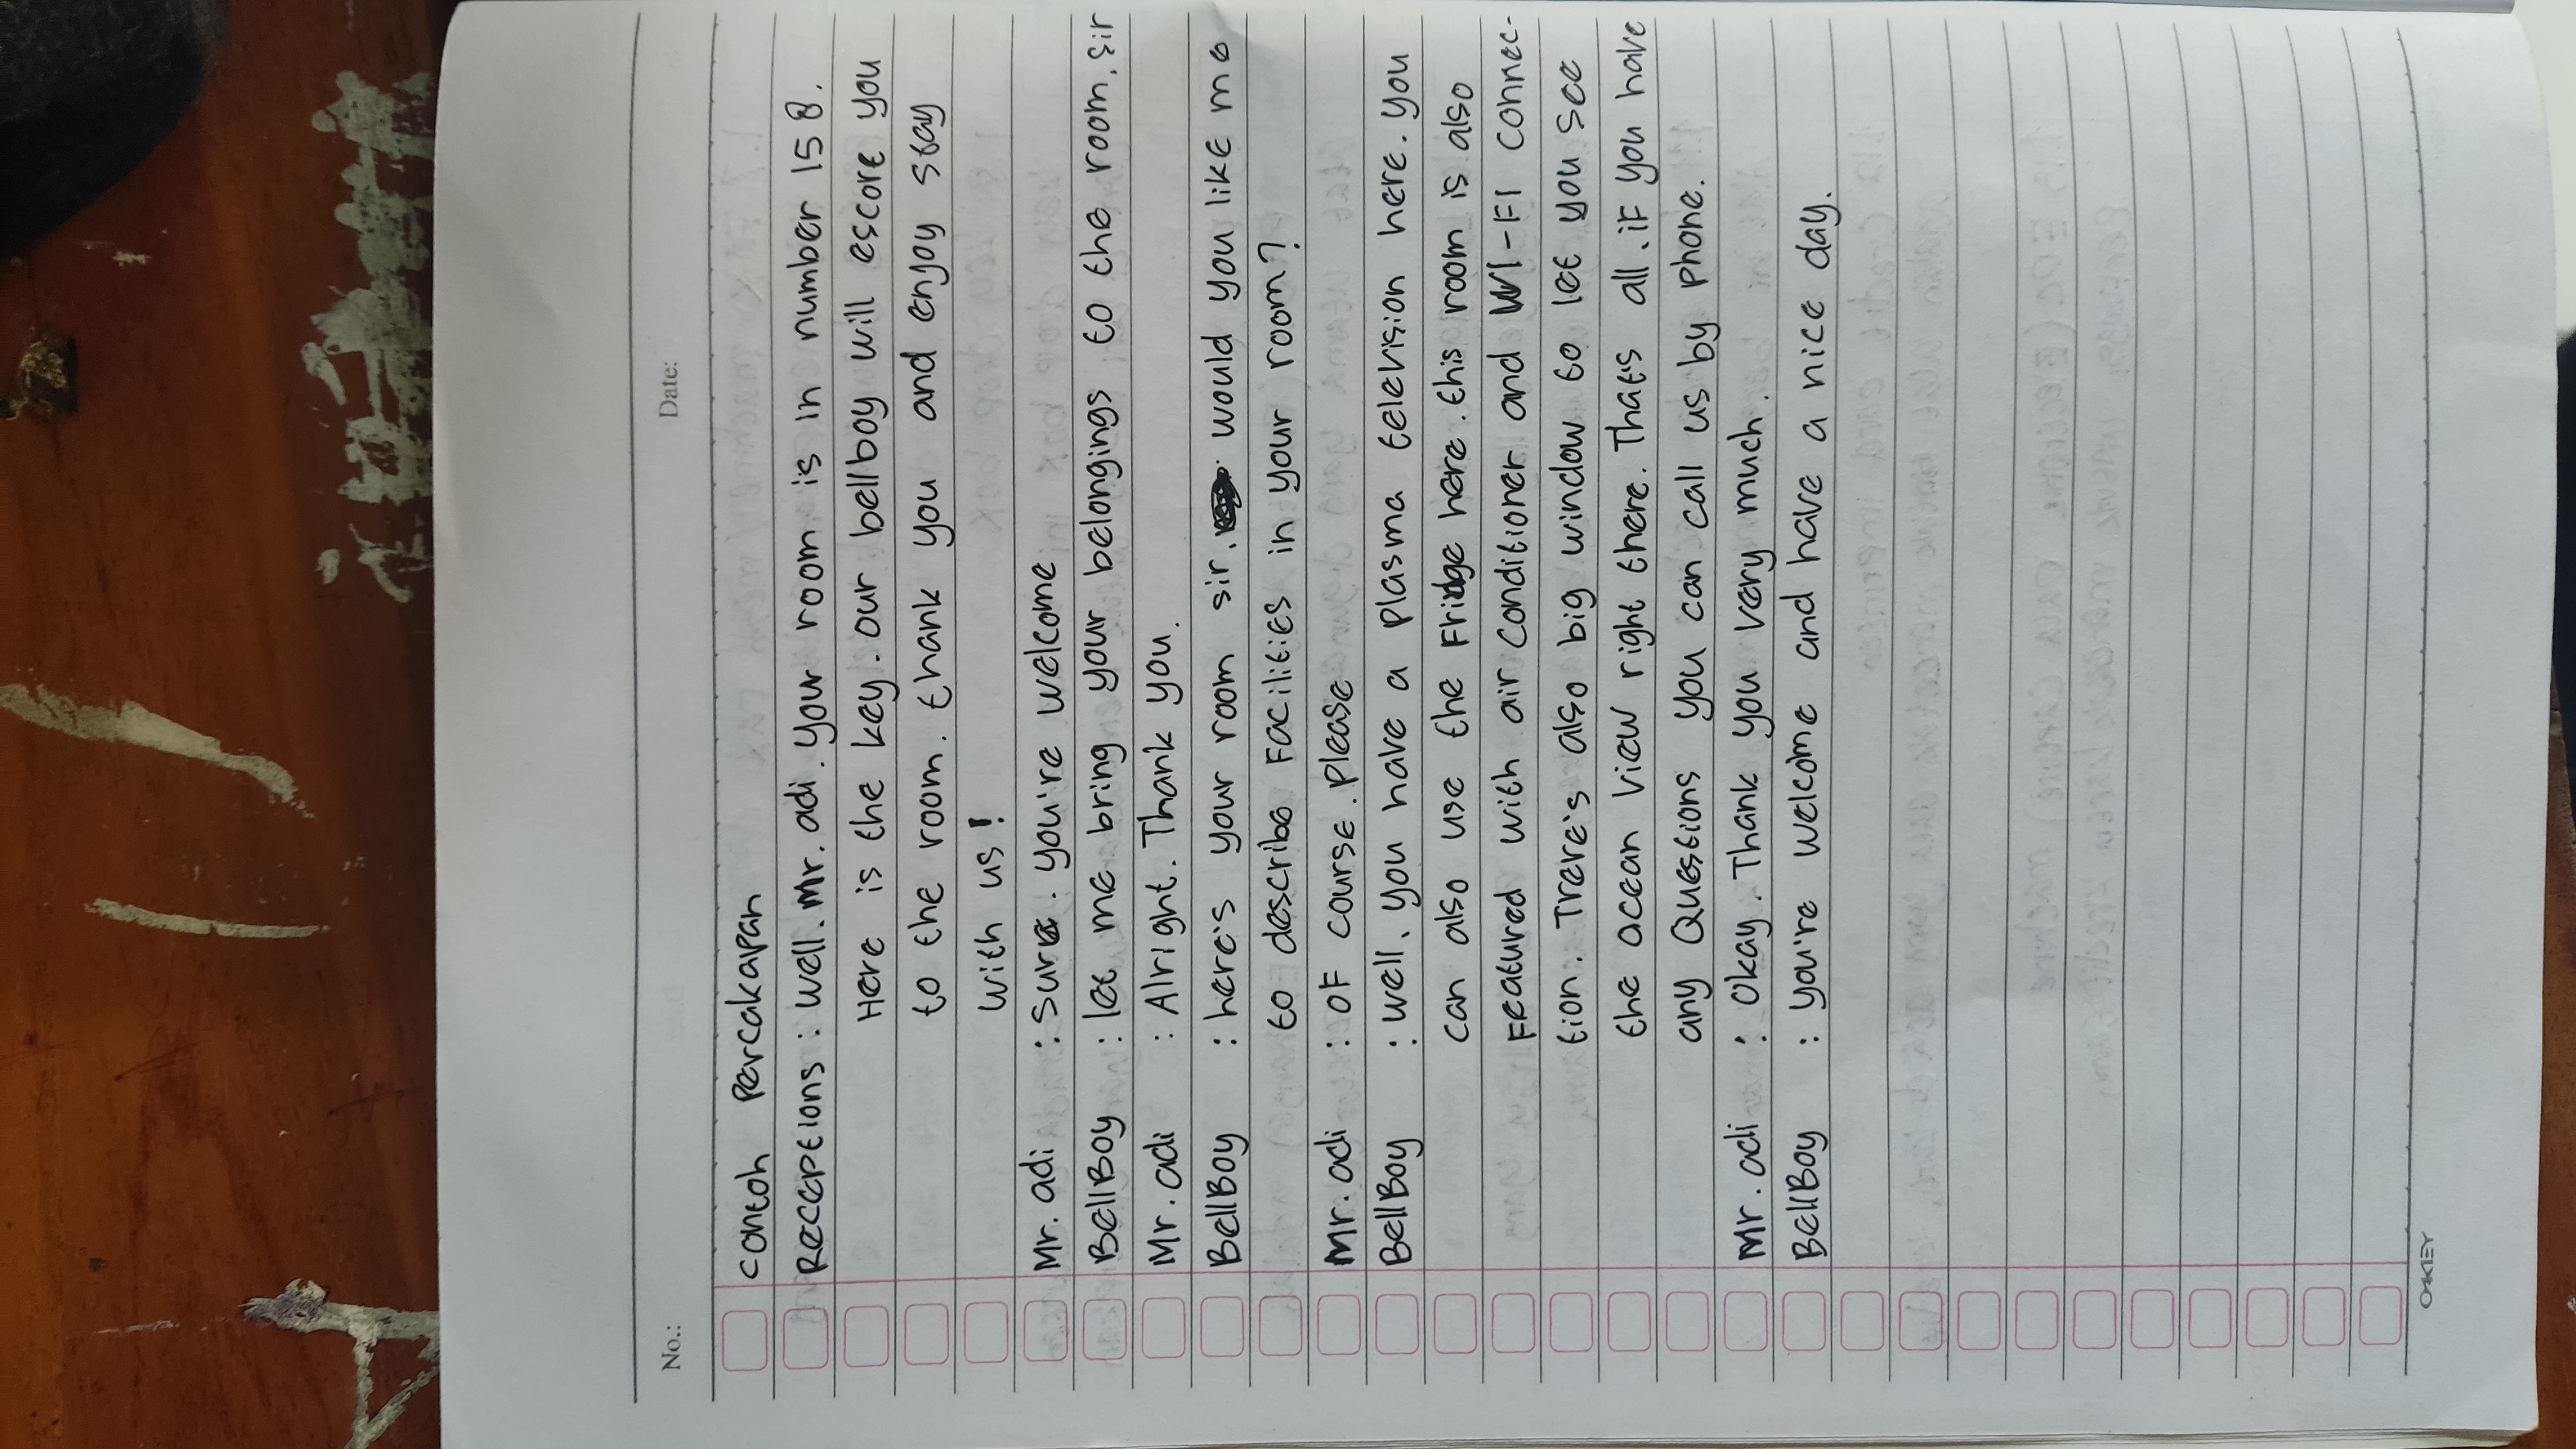 No.:
Date:
contoh percakapan
Receptions : well. Mr. adi. your room is in number 158.
Here is the key. our bellboy will escore you
to the room. thank you and enjoy stay
with us!
Mr. adi : sure. you're welcome
BellBoy : let me bring your belongings to the room, sir
Mr. adi : Alright. Thank you.
BellBoy : here's your room sir. would you like me
to describe Facilities in your room?
Mr. adi : OF course. please
BellBoy : well, you have a plasma television here. you
can also use the Fridge here. this room is also
Featured with air conditioner and WI-FI connec-
tion. Trere's also big window to let you see
the ocean view right there. That's all. if you have
any Questions you can call us by phone.
Mr. adi : Okay. Thank you very much.
BellBoy : you're welcome and have a nice day.
OAKLEY